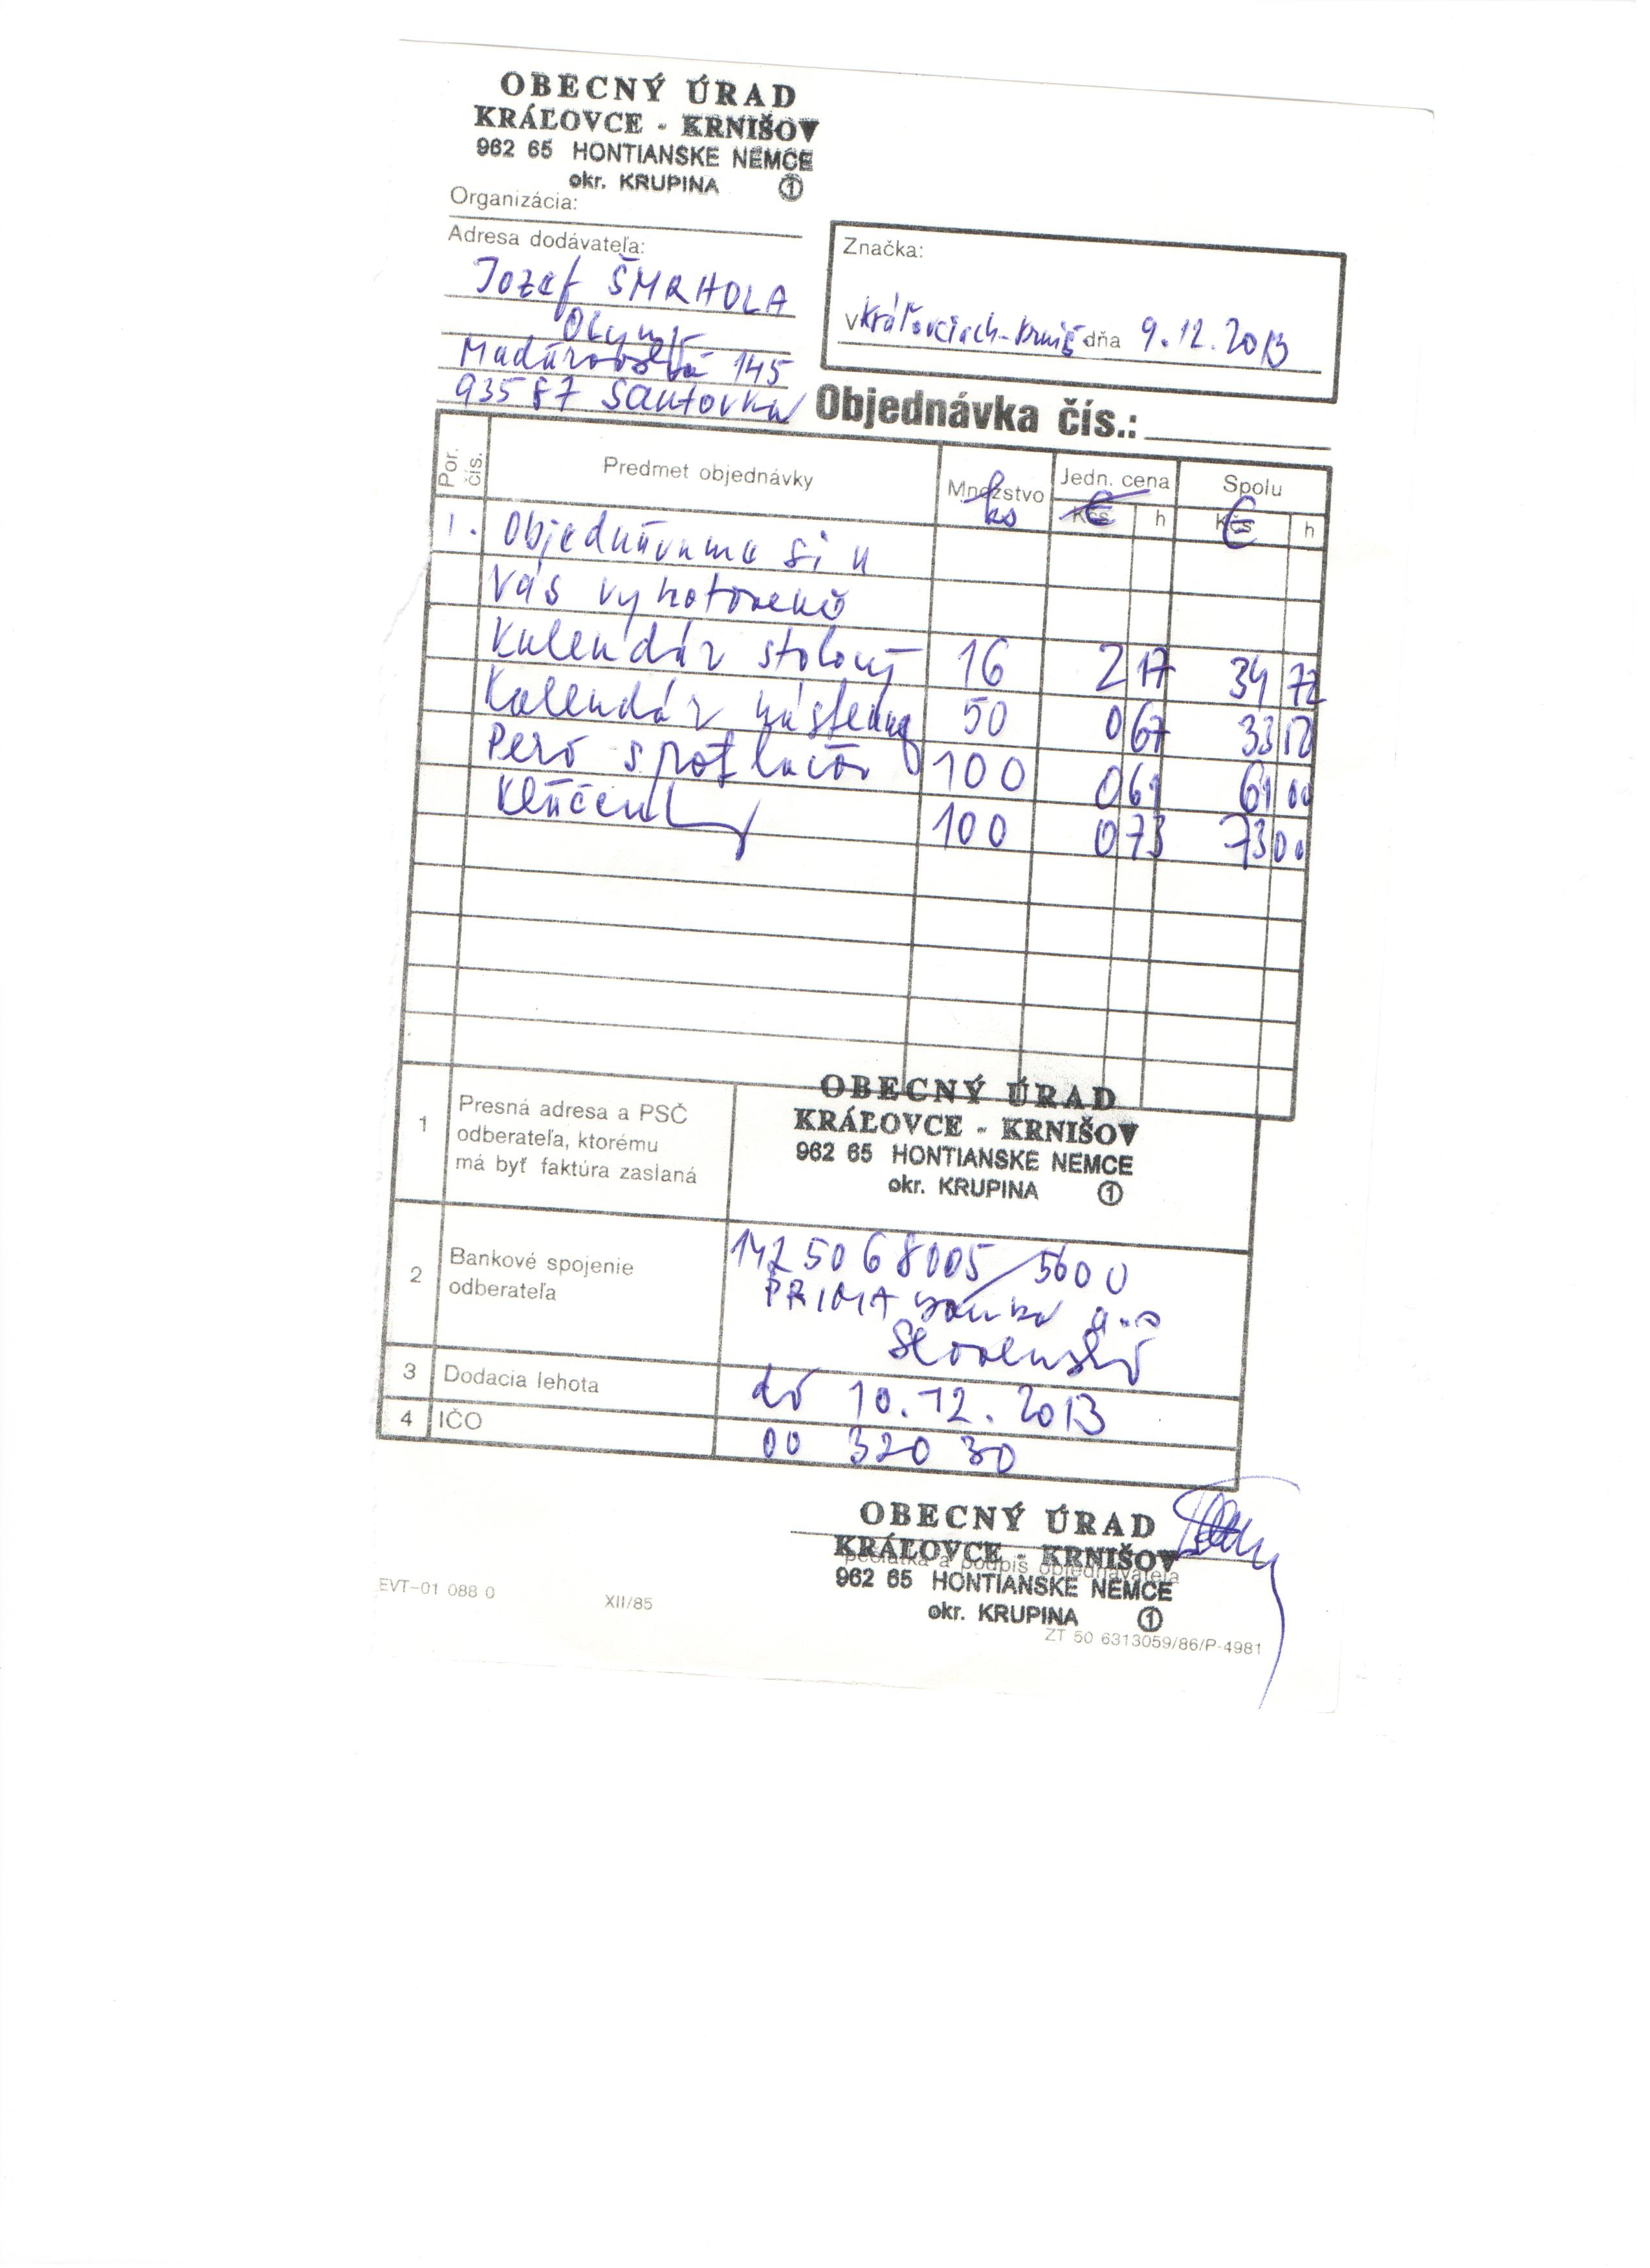 OBECNÝ ÚRAD
KRÁĽOVCE - KRNIŠOV
962 65 HONTIANSKE NEMCE
okr. KRUPINA 1
Organizácia:
Adresa dodávateľa:
Jozef ŠMRHOLA
Olymp
Maďarovská 145
935 87 Santovka
Značka:
v Kráľovciach-Krniš dňa 9.12.2013
Objednávka čís.:
Por. čís. Predmet objednávky Množstvo Jedn. cena Spolu
ks € h € h
1. Objednávame si u
Vás vyhotovenie
Kalendár stolový 16 2 17 34 72
Kalendár nástenný 50 0 67 33
Pero s potlačou 100 0 61 61 00
Kľúčenky 100 0 73 73 00
1 Presná adresa a PSČ
odberateľa, ktorému
má byť faktúra zaslaná
OBECNÝ ÚRAD
KRÁĽOVCE - KRNIŠOV
962 65 HONTIANSKE NEMCE
okr. KRUPINA 1
2 Bankové spojenie
odberateľa
1425068005/5600
PRIMA banka a.s
Slovensko
3 Dodacia lehota do 10.12.2013
4 IČO 00 320 30
OBECNÝ ÚRAD
KRÁĽOVCE - KRNIŠOV
pečiatka a podpis objednávateľa
962 65 HONTIANSKE NEMCE
okr. KRUPINA 1
EVT-01 088 0 XII/85
ZT 50 6313059/86/P-4981